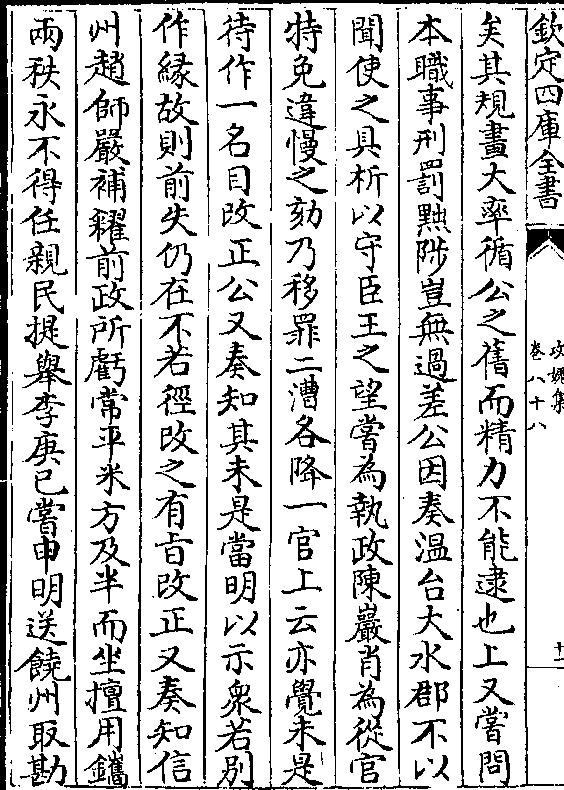 欽定四庫全書
攻媿集
卷八十八
十二
矣其規畫大率循公之舊而精力不能逮也上又嘗問
本職事刑罰黜陟豈無過差公因奏溫台大水郡不以
聞使之具析以守臣王之望嘗為執政陳巖肖為從官
特免違慢之劾乃移罪二漕各降一官上云亦覺未是
待作一名目改正公又奏知其未是當明以示衆若別
作縁故則前失仍在不若徑改之有㫖改正又奏知信
州趙師嚴補糴前政所虧常平米方及半而坐擅用鐫
兩秩永不得任親民提舉李庚已嘗申明送饒州取勘